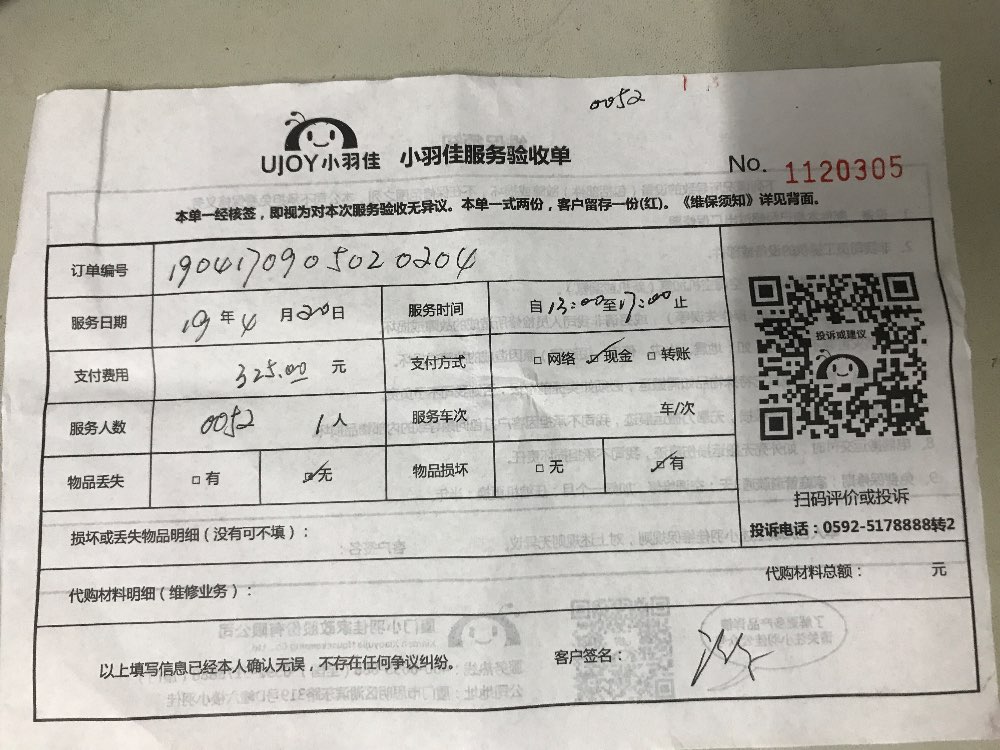 0052
UJOY小羽佳 小羽佳服务验收单
No. 1120305
本单一经核签，即视为对本次服务验收无异议。本单一式两份，客户留存一份(红)。《维保须知》详见背面。
订单编号 1904170905020204
服务日期 19年4月20日 服务时间 自13:00至17:00止
支付费用 325.00元 支付方式 □网络 ☑现金 □转账
服务人数 0052 1人 服务车次 车/次
物品丢失 □有 ☑无 物品损坏 □无 ☑有
投诉或建议
扫码评价或投诉
投诉电话：0592-5178888转2
损坏或丢失物品明细（没有可不填）：
代购材料明细（维修业务）： 代购材料总额： 元
以上填写信息已经本人确认无误，不存在任何争议纠纷。 客户签名：